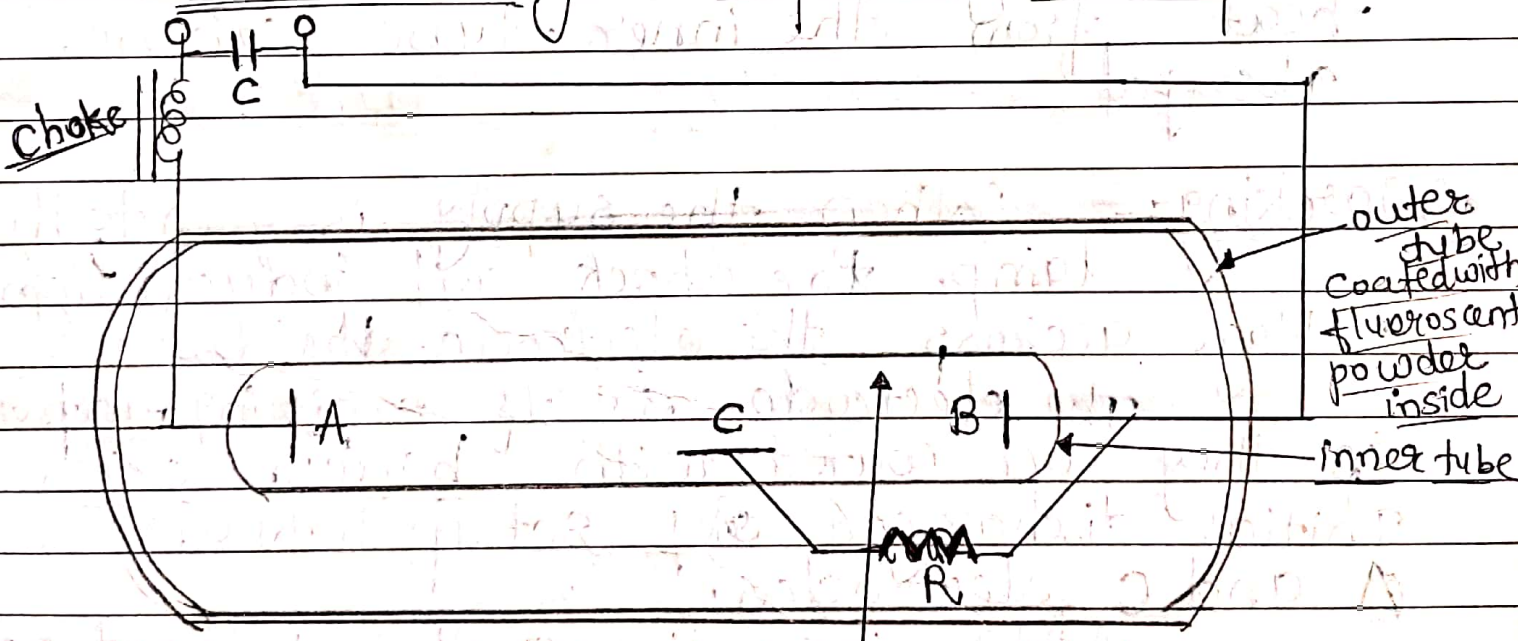 C
Choke
outer
tube
Coated with
fluoroscent
powder
inside
A
C
B
inner tube
R